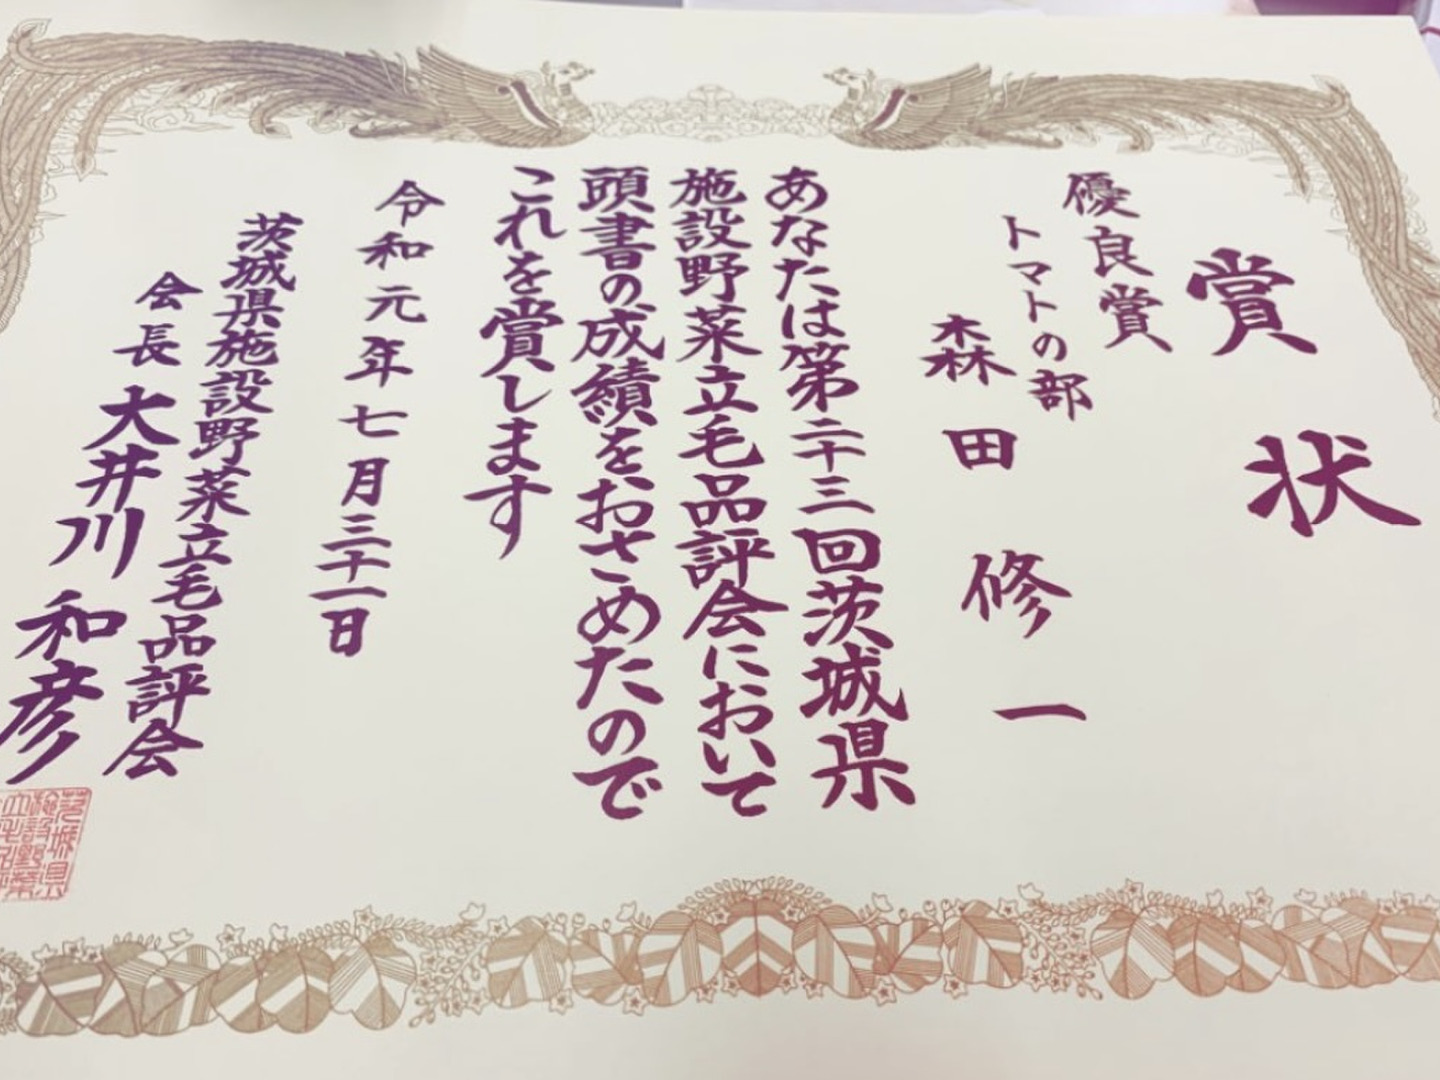 賞状
優良賞
トマトの部
森田修一
あなたは第二十三回茨城県
施設野菜立毛品評会において
頭書の成績をおさめたので
これを賞します
令和元年七月三十一日
茨城県施設野菜立毛品評会
会長 大井川和彦